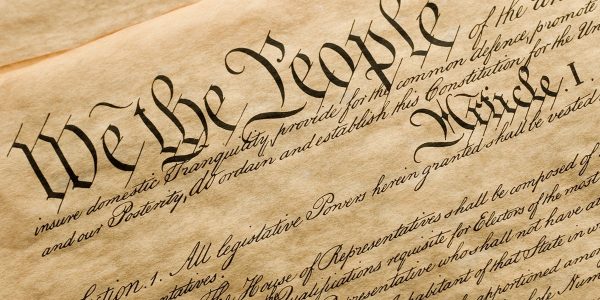 We the People of the Un
insure domestic Tranquility, provide for the common defence, promote
and our Posterity, do ordain and establish this Constitution for the Uni
Article. I.
Section. 1. All legislative Powers herein granted shall be vested
sentatives.
The House of Representatives shall be composed of
Qualifications requisite for Electors of the most
Representative who shall not have at
Inhabitant of that State in w
apportioned amon
Num